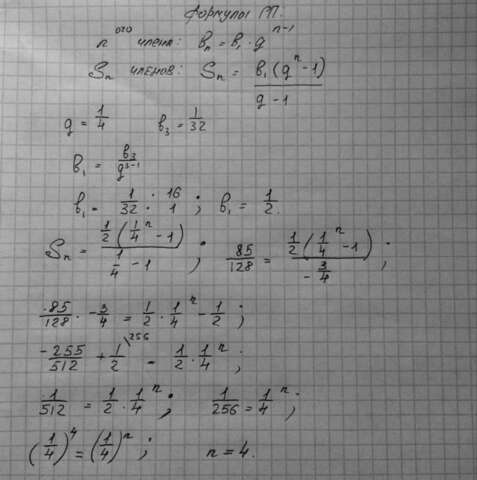 Формулы ГП.
n ого члена: b₁ₙ = b₁ · q^(n-1)
Sₙ членов: Sₙ = b₁(qⁿ - 1) / (q - 1)
q = 1/4   b₃ = 1/32
b₁ = b₃ / q^(3-1)
b₁ = 1/32 · 16/1 ; b₁ = 1/2.
Sₙ = 1/2 (1/4ⁿ - 1) / (1/4 - 1) ; 85/128 = 1/2 (1/4ⁿ - 1) / (-3/4) ;
85/128 · -3/4 = 1/2 · 1/4ⁿ - 1/2 ;
-255/512 + 1/2 \256 = 1/2 · 1/4ⁿ ;
1/512 = 1/2 · 1/4ⁿ ; 1/256 = 1/4ⁿ ;
(1/4)⁴ = (1/4)ⁿ ; n = 4.